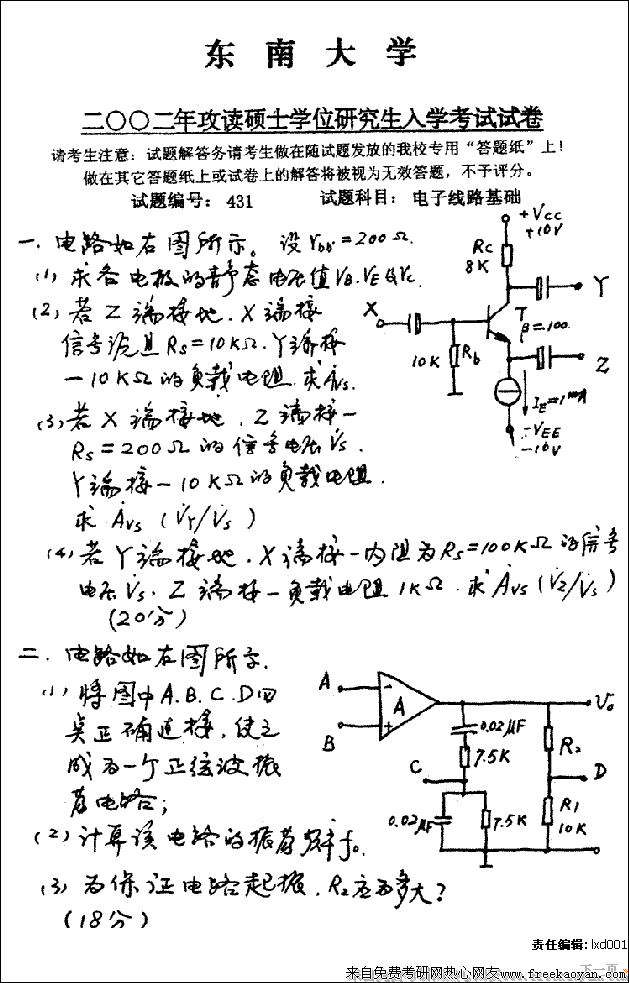 东南大学
二〇〇二年攻读硕士学位研究生入学考试试卷
请考生注意：试题解答务请考生做在随试题发放的我校专用“答题纸”上！
做在其它答题纸上或试卷上的解答将被视为无效答题，不予评分。
试题编号：431 试题科目：电子线路基础
一. 电路如右图所示。设 rbb'=200Ω.
(1) 求各电极的静态电压值VB.VE及Vc.
(2) 若Z端接地.X端接
信号源且Rs=10KΩ.Y端接
一10KΩ的负载电阻.求Avs.
(3) 若X端接地.Z端接一
Rs=200Ω的信号电压Vs.
Y端接一10KΩ的负载电阻.
求 Avs (VY/Vs)
(4) 若Y端接地.X端接一内阻为Rs=100KΩ的信号
电压Vs.Z端接一负载电阻1KΩ.求Avs(Vz/Vs)
(20分)
+Vcc
+10V
Rc
8K
Y
X
T
β=100
10K
Rb
Z
IE=1mA
-VEE
-10V
二. 电路如右图所示.
(1) 将图中A.B.C.D四
点正确连接,使之
成为一个正弦波振
荡电路;
(2) 计算该电路的振荡频率fo.
(3) 为保证电路起振.R2应为多大?
(18分)
A
B
-
A
+
Vo
0.02μF
7.5K
R2
C
D
0.02μF
7.5K
R1
10K
责任编辑:lxd001
下一页
来自免费考研网热心网友www.freekaoyan.com